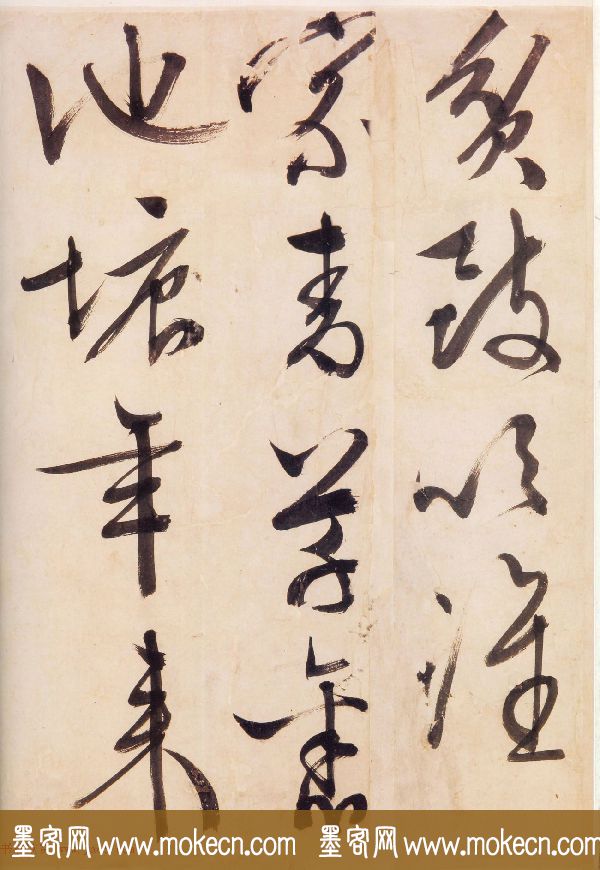 鼓吹誰
家青草舊
池塘年来
墨客网 www.mokecn.com 墨客网 www.mokecn.com